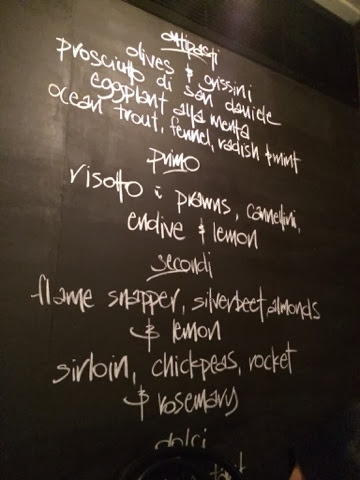 antipasti
olives & grissini
prosciutto di san daniele
eggplant alla menta
ocean trout, fennel, radish & mint
primo
risotto i prawns, cannellini,
endive & lemon
secondi
flame snapper, silverbeet, almonds
& lemon
sirloin, chickpeas, rocket
& rosemary
dolci